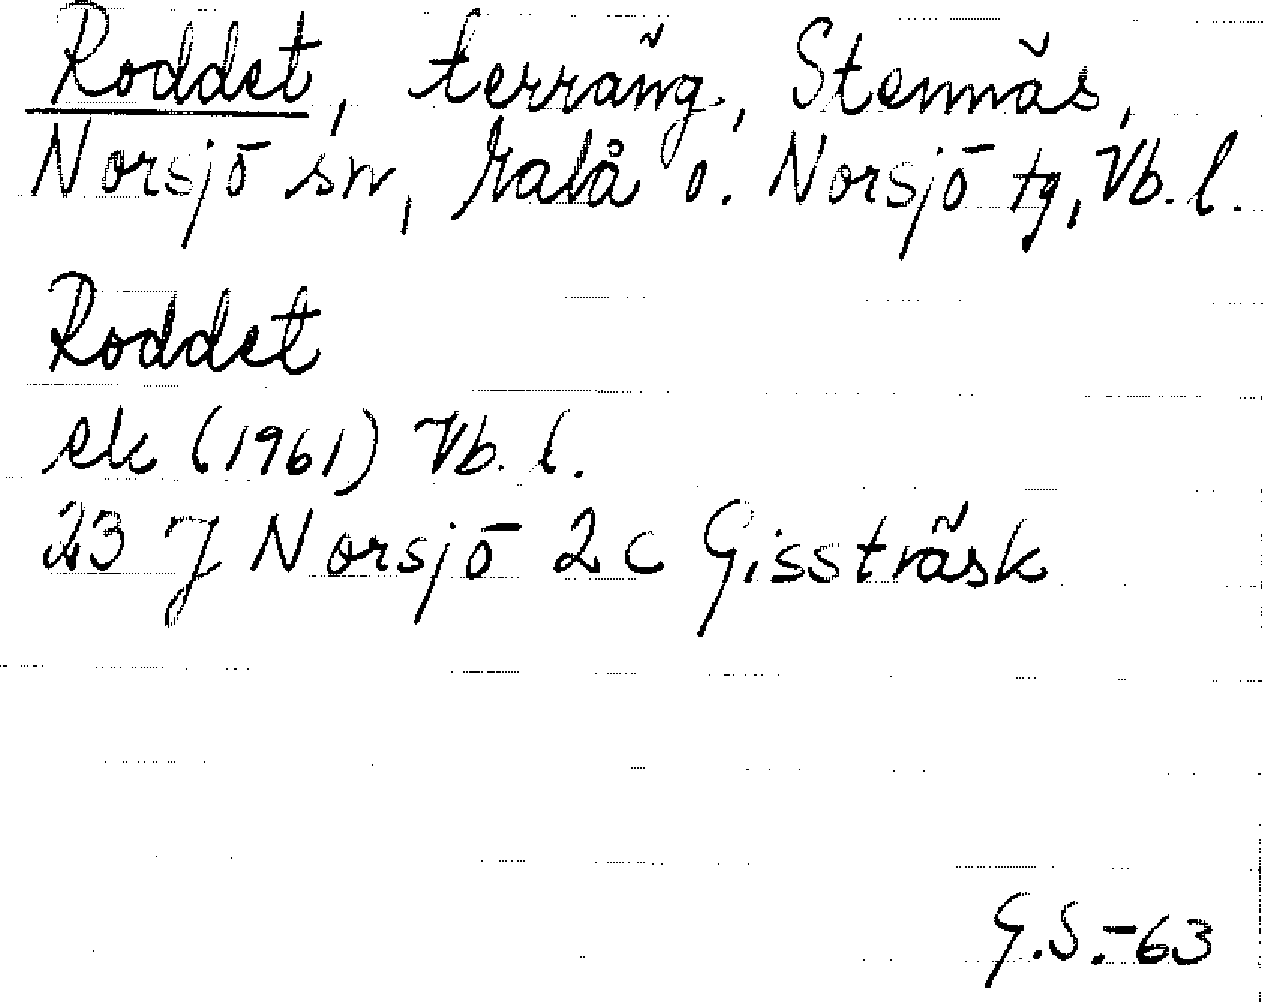 Roddet, terräng, Stennäs,
Norsjö sn, Malå o. Norsjö tg, Vb. l.
Roddet
ek (1961) Vb. l.
23 J Norsjö 2c Gissträsk
G.S.-63